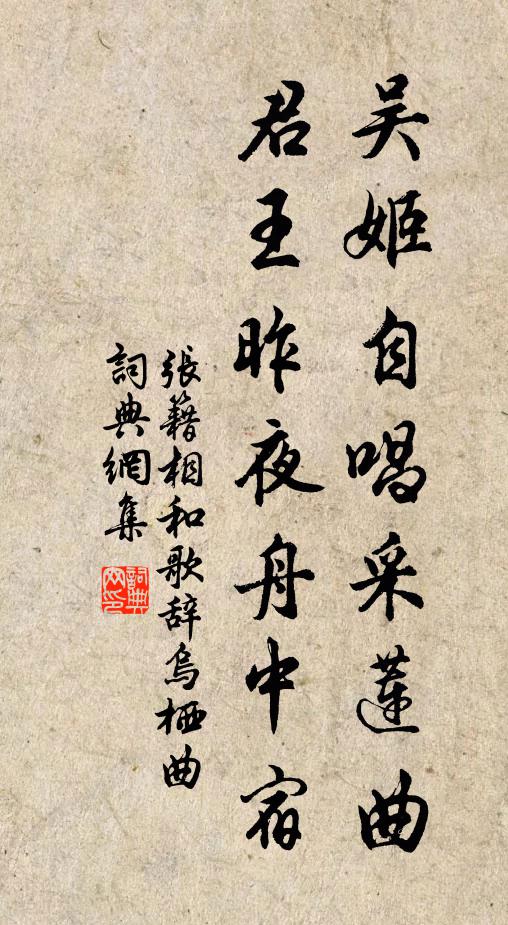 吴姬自唱采蓮曲
君王昨夜舟中宿
張籍相和歌辞烏栖曲
詞典網集
詞典網印